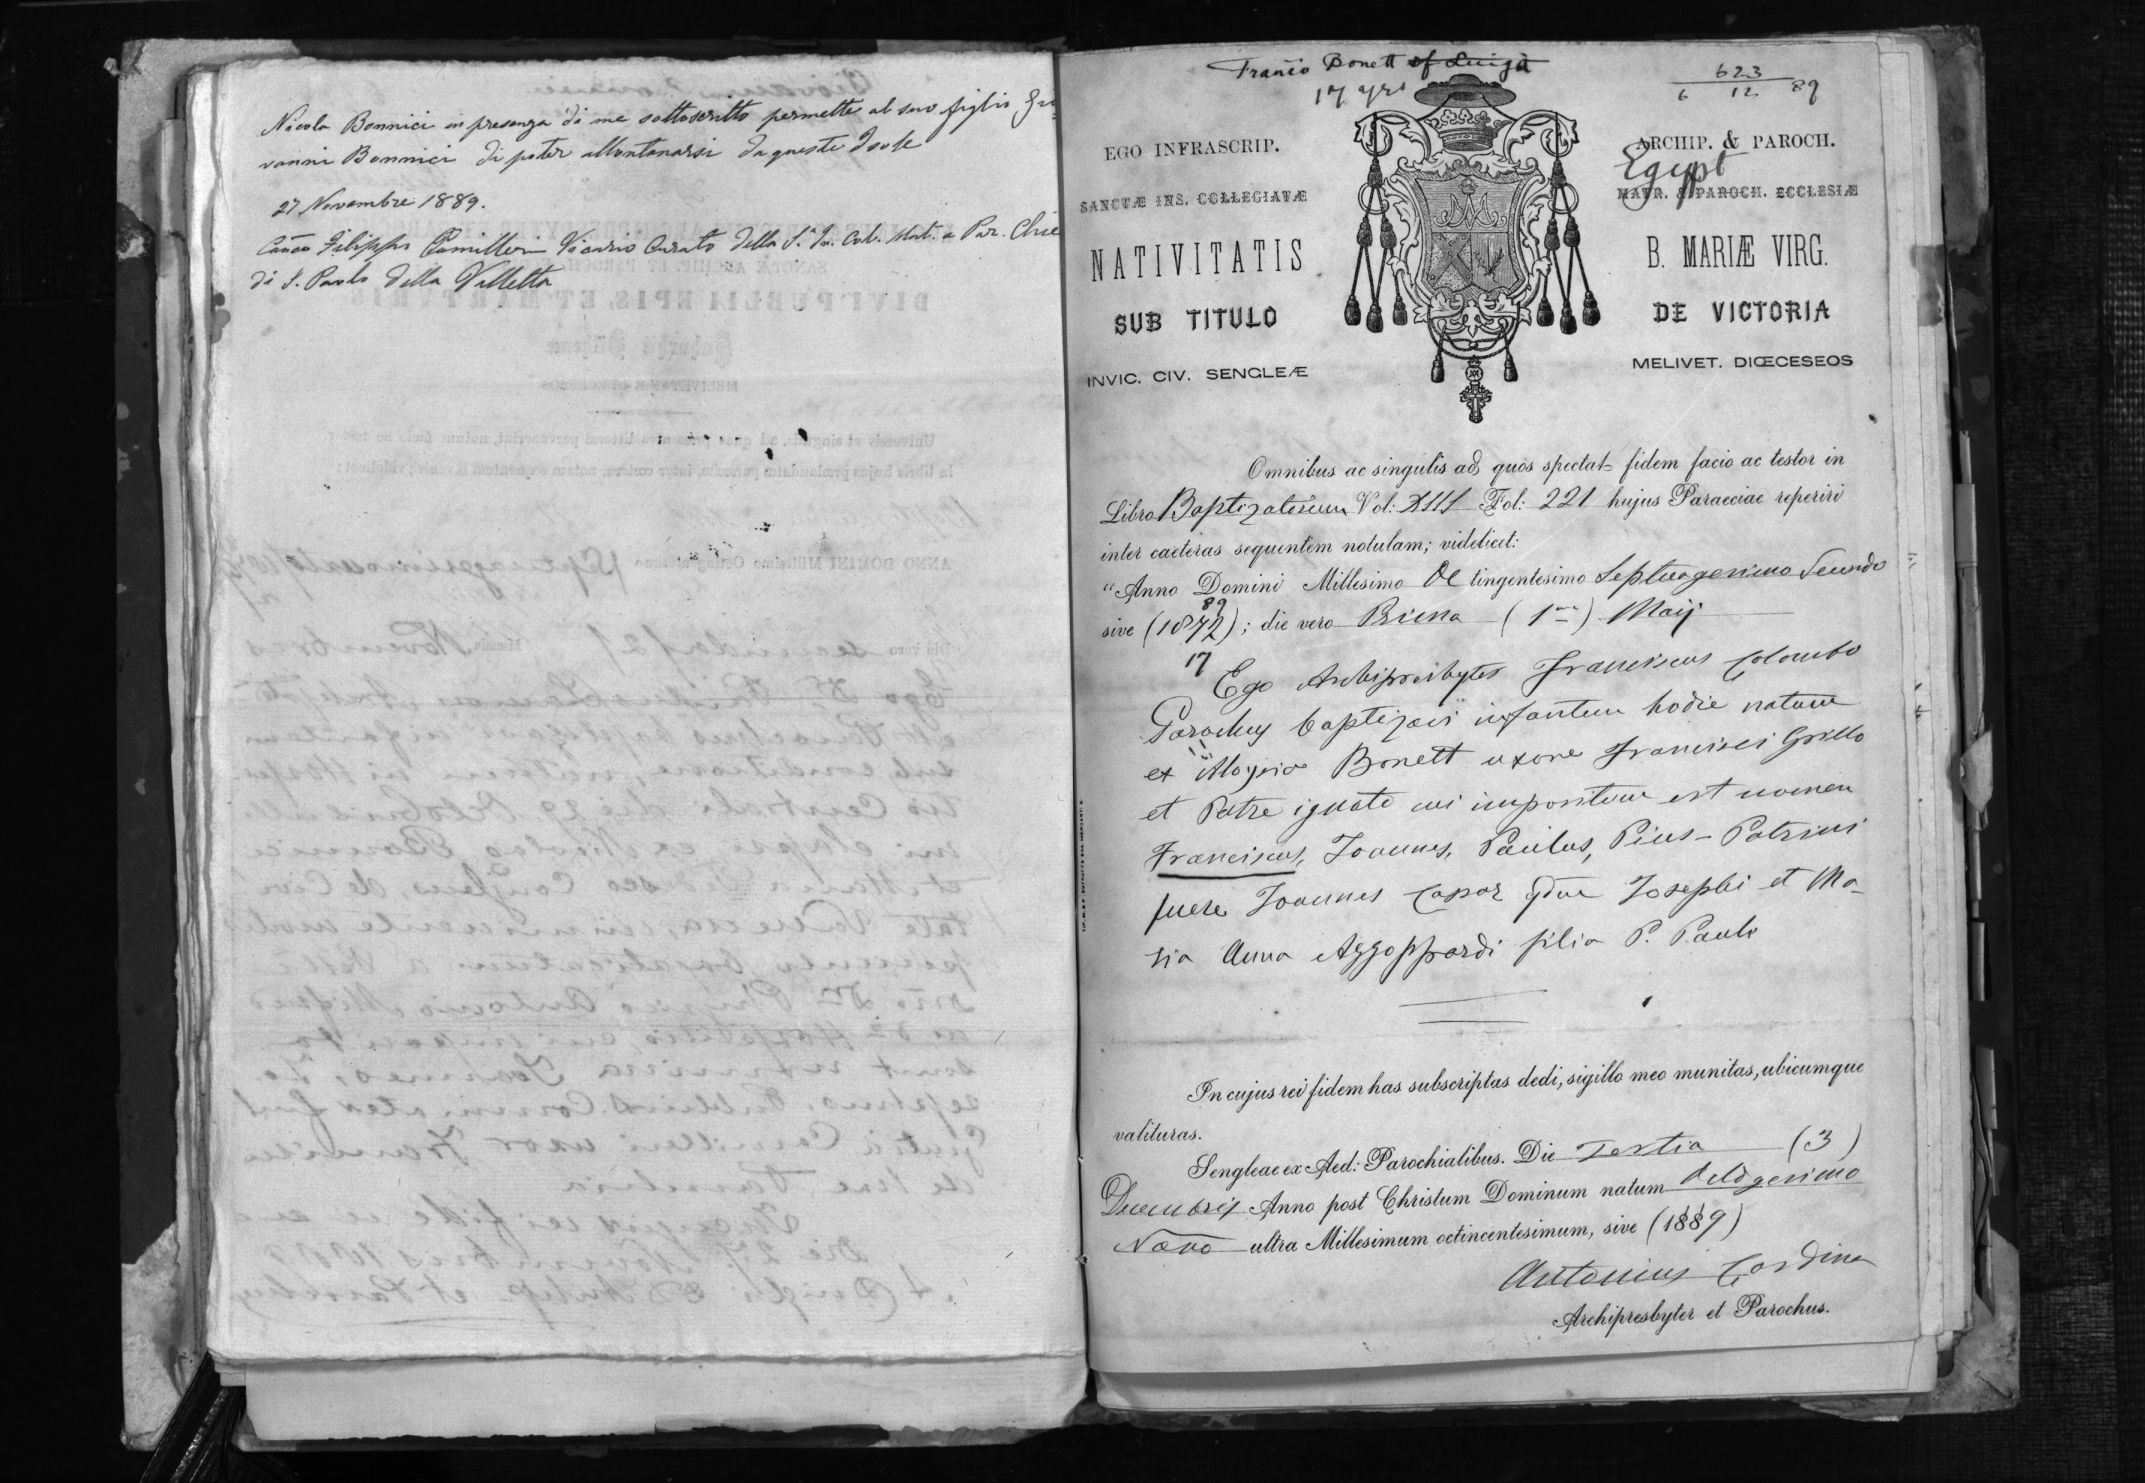 Nicola Bonnici in presenza di me sottoscritto permette al suo figlio Gio
vanni Bonnici di poter allontanarsi da queste Isole
27 Novembre 1889.
Canco Filippo Camilleri Vicario Curato della S. In. Col. Mat. e Par. Chie
di S. Paolo della Valletta
Franco Bonett of Luigia
17 yrs
623
6 12 89
EGO INFRASCRIP.
ARCHIP. & PAROCH.
Egypt
SANCTÆ INS. COLLEGIATÆ
MATR. & PAROCH. ECCLESIÆ
NATIVITATIS
B. MARIÆ VIRG.
SUB TITULO
DE VICTORIA
INVIC. CIV. SENGLEÆ
MELIVET. DIŒCESEOS
Omnibus ac singulis ad quos spectat fidem facio ac testor in
Libro Baptizatorum Vol: XIII Fol: 221 hujus Paraeciae reperiri
inter caeteras sequentem notulam; videlicet:
"Anno Domini Millesimo Octingentesimo Septuagesimo Secundo
89
sive (1872); die vero Prima (1ma) Maij
17
Ego Archipresbyter Franciscus Colombo
Parochus baptizavi infantem hodie natum
ex Aloysia Bonett uxore Francisci Grillo
et Patre ignoto cui impositum est nomen
Franciscus, Joannes, Paulus, Pius - Patrini
fuere Joannes Caspar qdm Josephi et Ma-
ria Anna Azzoppardi filia P. Pauli
In cujus rei fidem has subscriptas dedi, sigillo meo munitas, ubicumque
valituras.
Sengleae ex Aed: Parochialibus. Die Tertia (3)
Decembris Anno post Christum Dominum natum Octogesimo
Nono ultra Millesimum octincentesimum, sive (1889)
Antonius Cardina
Archipresbyter et Parochus.